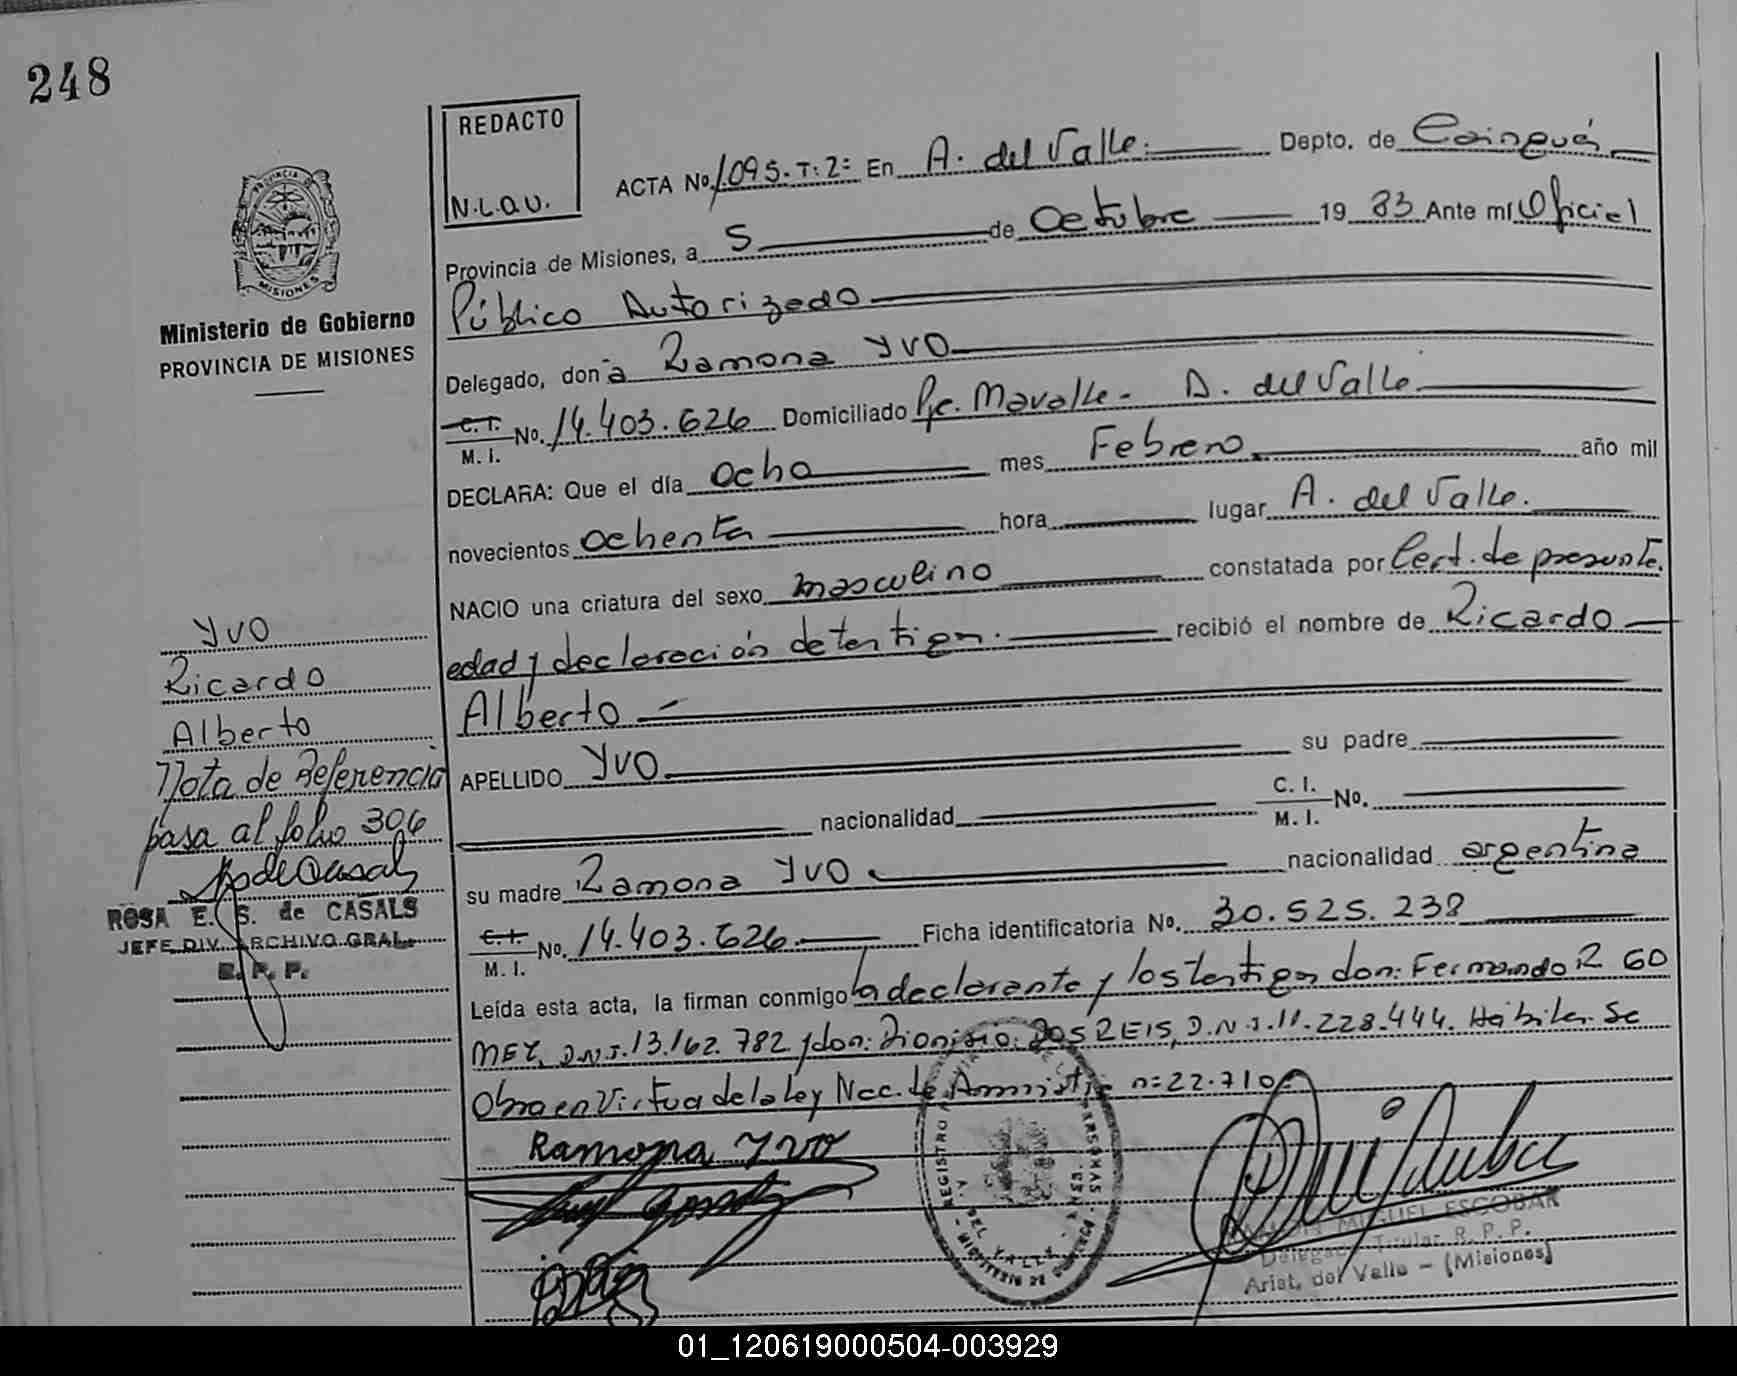 248
REDACTO
N.L.O.U.
ACTA No. 1.095. T: 2º En A. del Valle. Depto. de Cainguás
Provincia de Misiones, a 5 de Octubre 19 83 Ante mí Oficial
Público Autorizado
Delegado, doña Ramona YVO
C. I.
M. I. No. 14.403.626 Domiciliado Pje. Mavalle - A. del Valle.
DECLARA: Que el día ocho mes Febrero año mil
novecientos ochenta hora lugar A. del Valle.
NACIO una criatura del sexo masculino constatada por Cert. de presunta
edad y declaración de testigos. recibió el nombre de Ricardo
Alberto
APELLIDO YVO su padre
nacionalidad C. I.
M. I. No.
su madre Ramona YVO nacionalidad argentina
C. I.
M. I. No. 14.403.626 Ficha identificatoria No. 30.525.238
Leída esta acta, la firman conmigo la declarante y los testigos don: Fernando R GO
MEZ, D.N.I. 13.162.782 y don: Dionisio DOS REIS, D.N.I. 11.228.444. Hábiles. Se
Obra en Virtud de la Ley Nac. de Amnistía n: 22.710
Ramona YVO
MIGUEL ESCOBAR
Delegado Titular R. P. P.
Arist. del Valle - (Misiones)
PROVINCIA
MISIONES
Ministerio de Gobierno
PROVINCIA DE MISIONES
YVO
Ricardo
Alberto
Nota de Referencia
pasa al folio 306
ROSA E. S. de CASALS
JEFE DIV. ARCHIVO GRAL.
R. P. P.
01_120619000504-003929